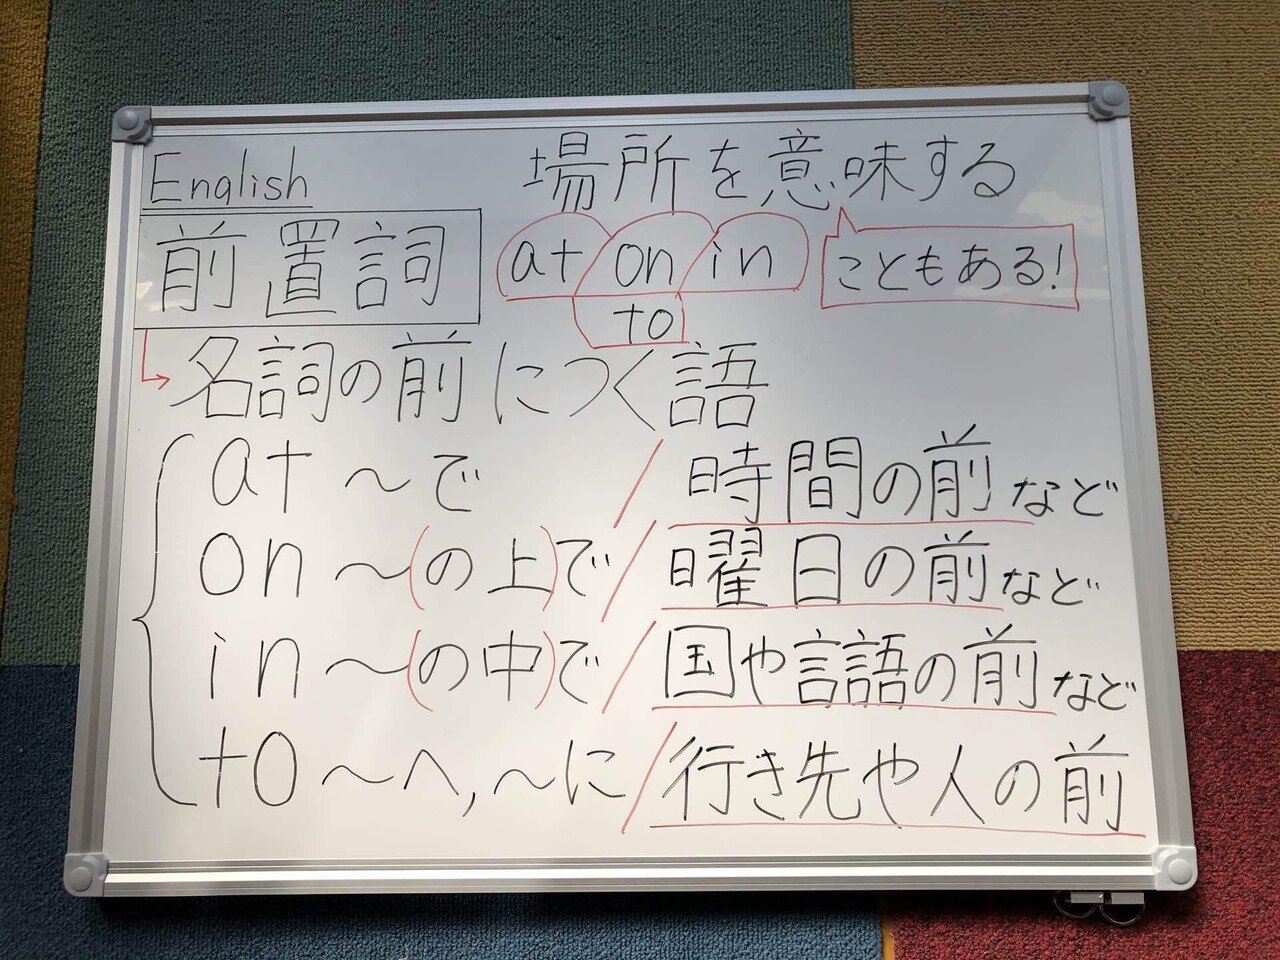 English
場所を意味する
前置詞
at on in
to
こともある!
名詞の前につく語
at ～で / 時間の前など
on ～(の上)で / 曜日の前など
in ～(の中)で / 国や言語の前など
to ～へ,～に / 行き先や人の前